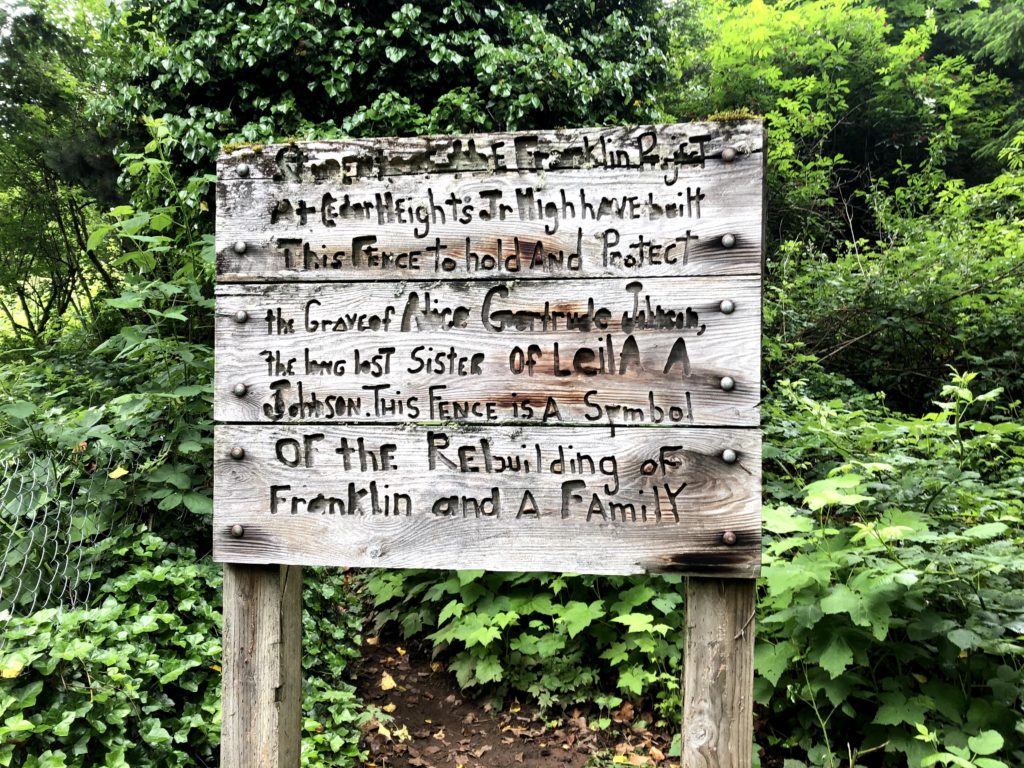 the Franklin Project
At Cedar Heights Jr High hAVE built
This Fence to hold And Protect
the Grave of Alice Gertrude Johnson,
the long lost Sister Of LeilA A
Johnson. This Fence is A Symbol
Of the Rebuilding of
Franklin and A FAmilY